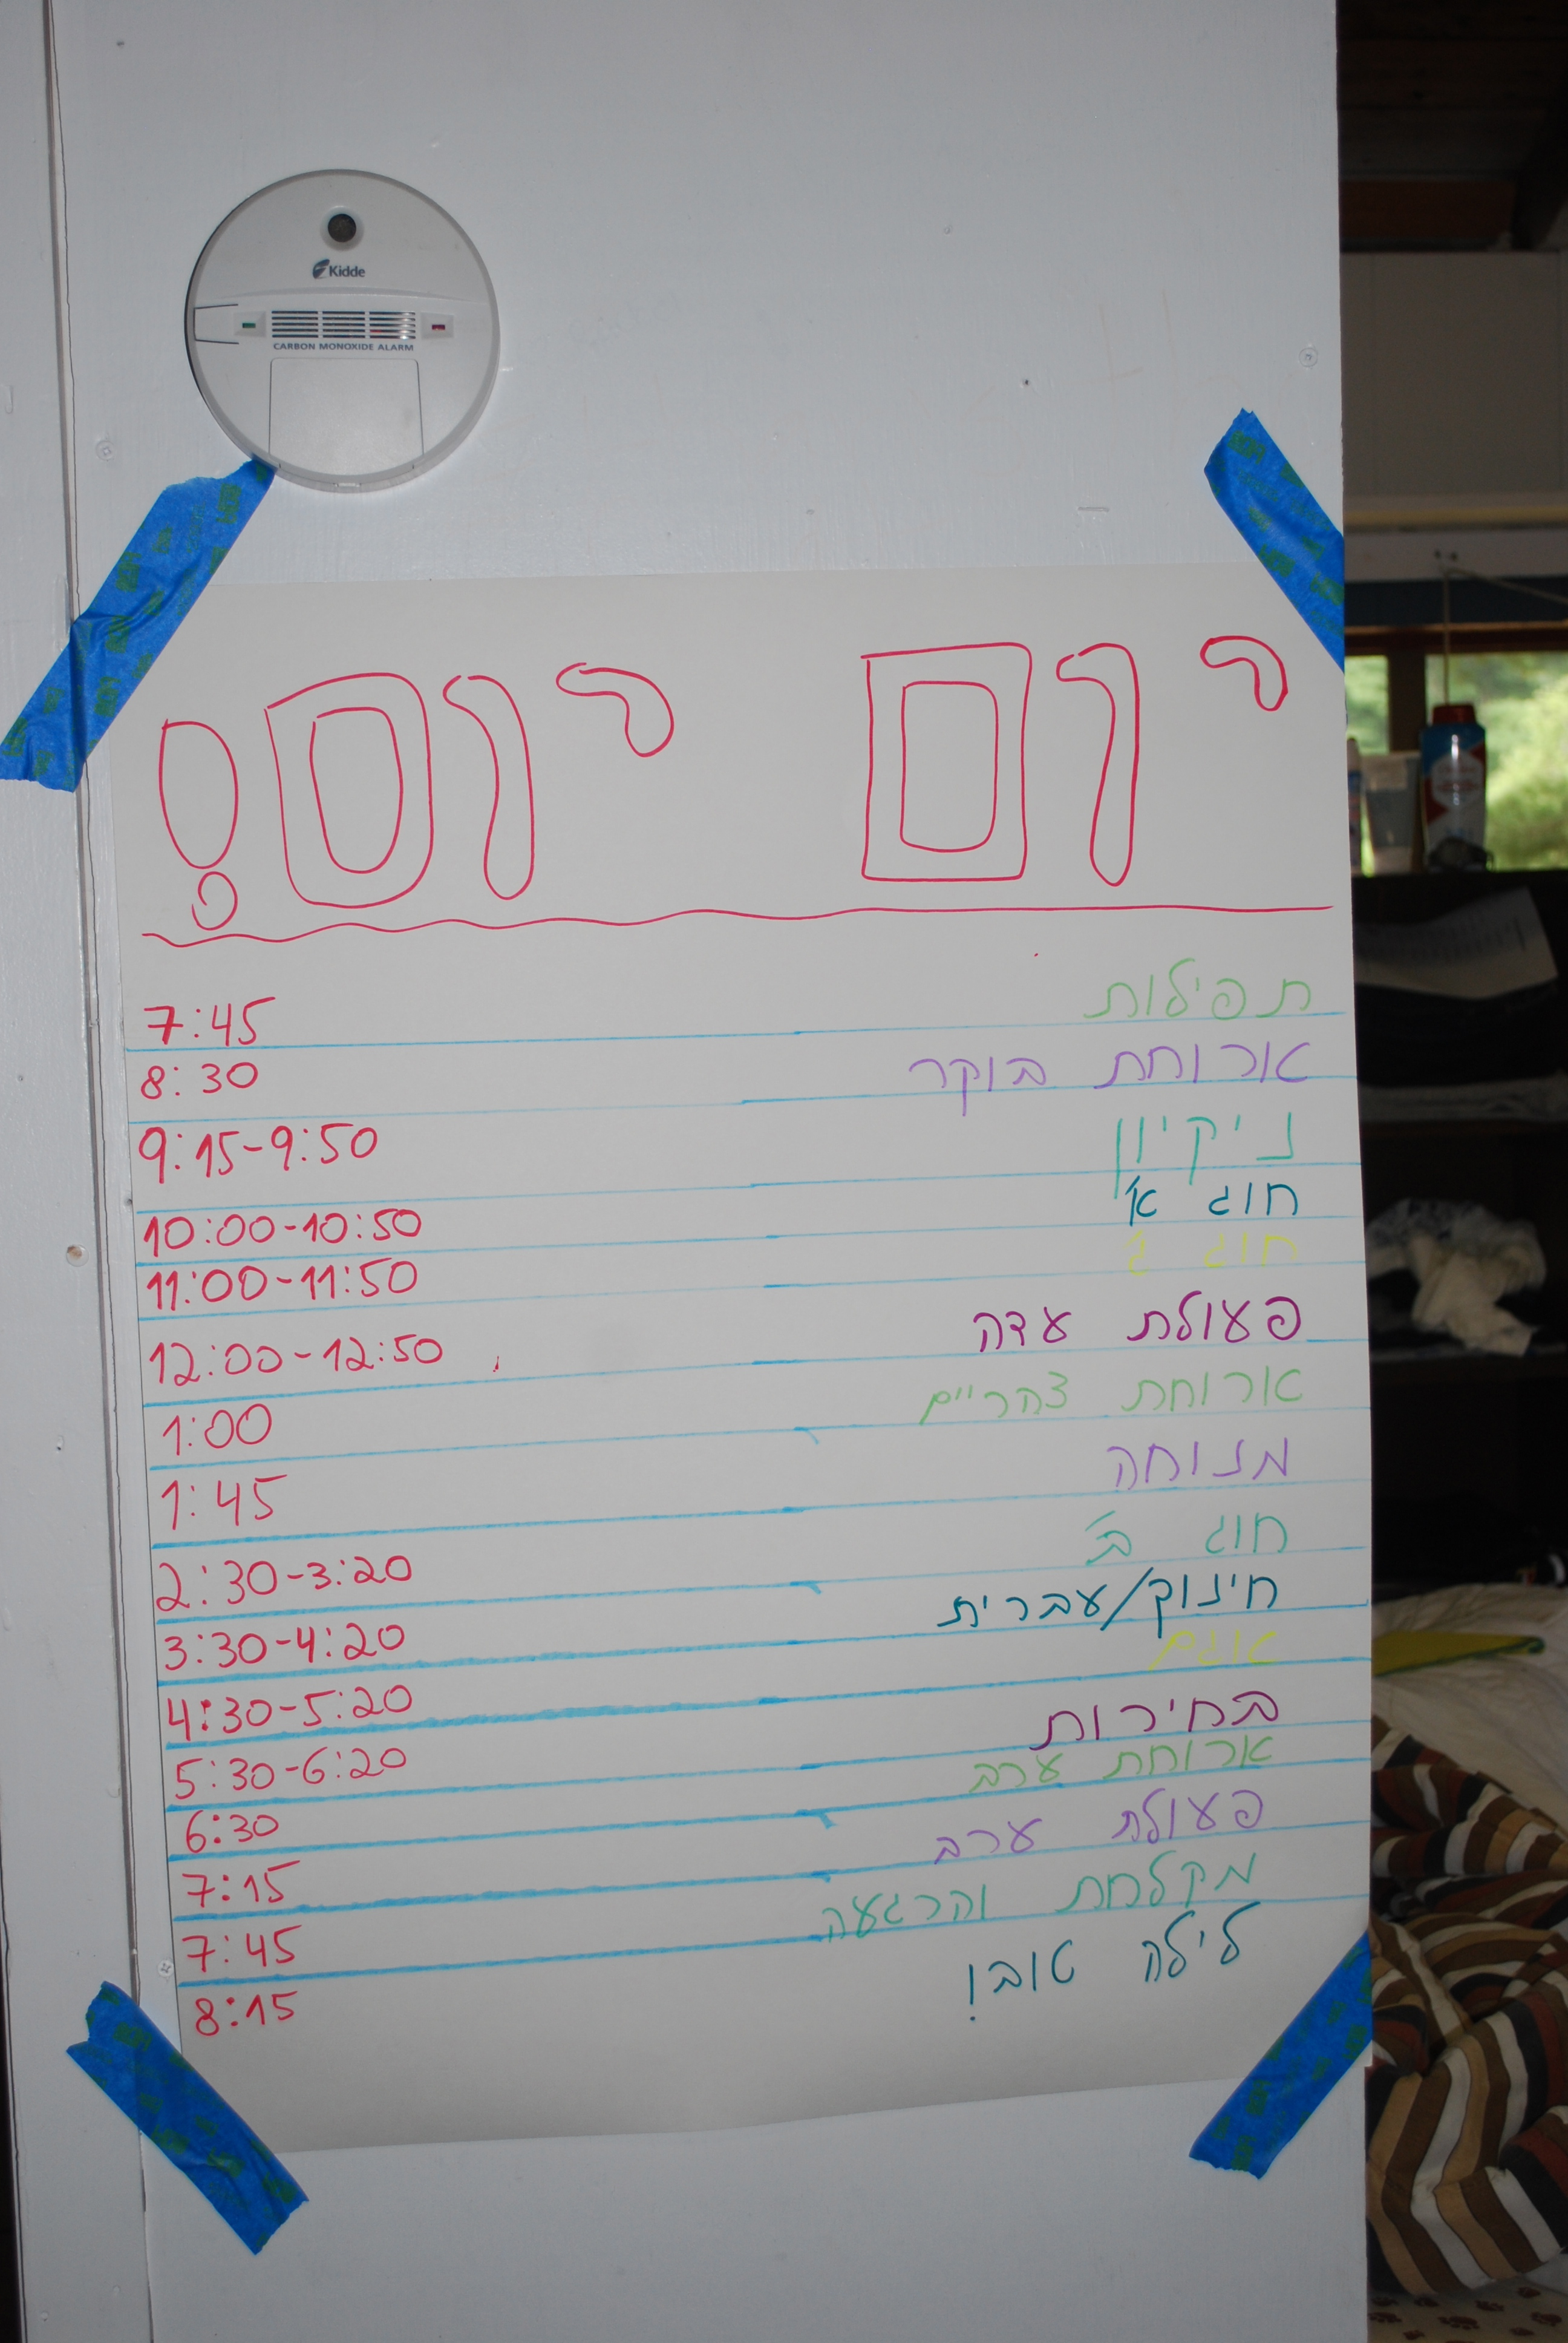 Kidde
CARBON MONOXIDE ALARM
יום יום!
תפילות 7:45
ארוחת בוקר 8:30
ניקיון 9:15-9:50
חוג א' 10:00-10:50
חוג ג' 11:00-11:50
פעולת עדה 12:00-12:50
ארוחת צהריים 1:00
מנוחה 1:45
חוג ב' 2:30-3:20
חינוק/עברית 3:30-4:20
אגם 4:30-5:20
בחירות 5:30-6:20
ארוחת ערב 6:30
פעולת ערב 7:15
מקלחת והרגעה 7:45
לילה טוב! 8:15